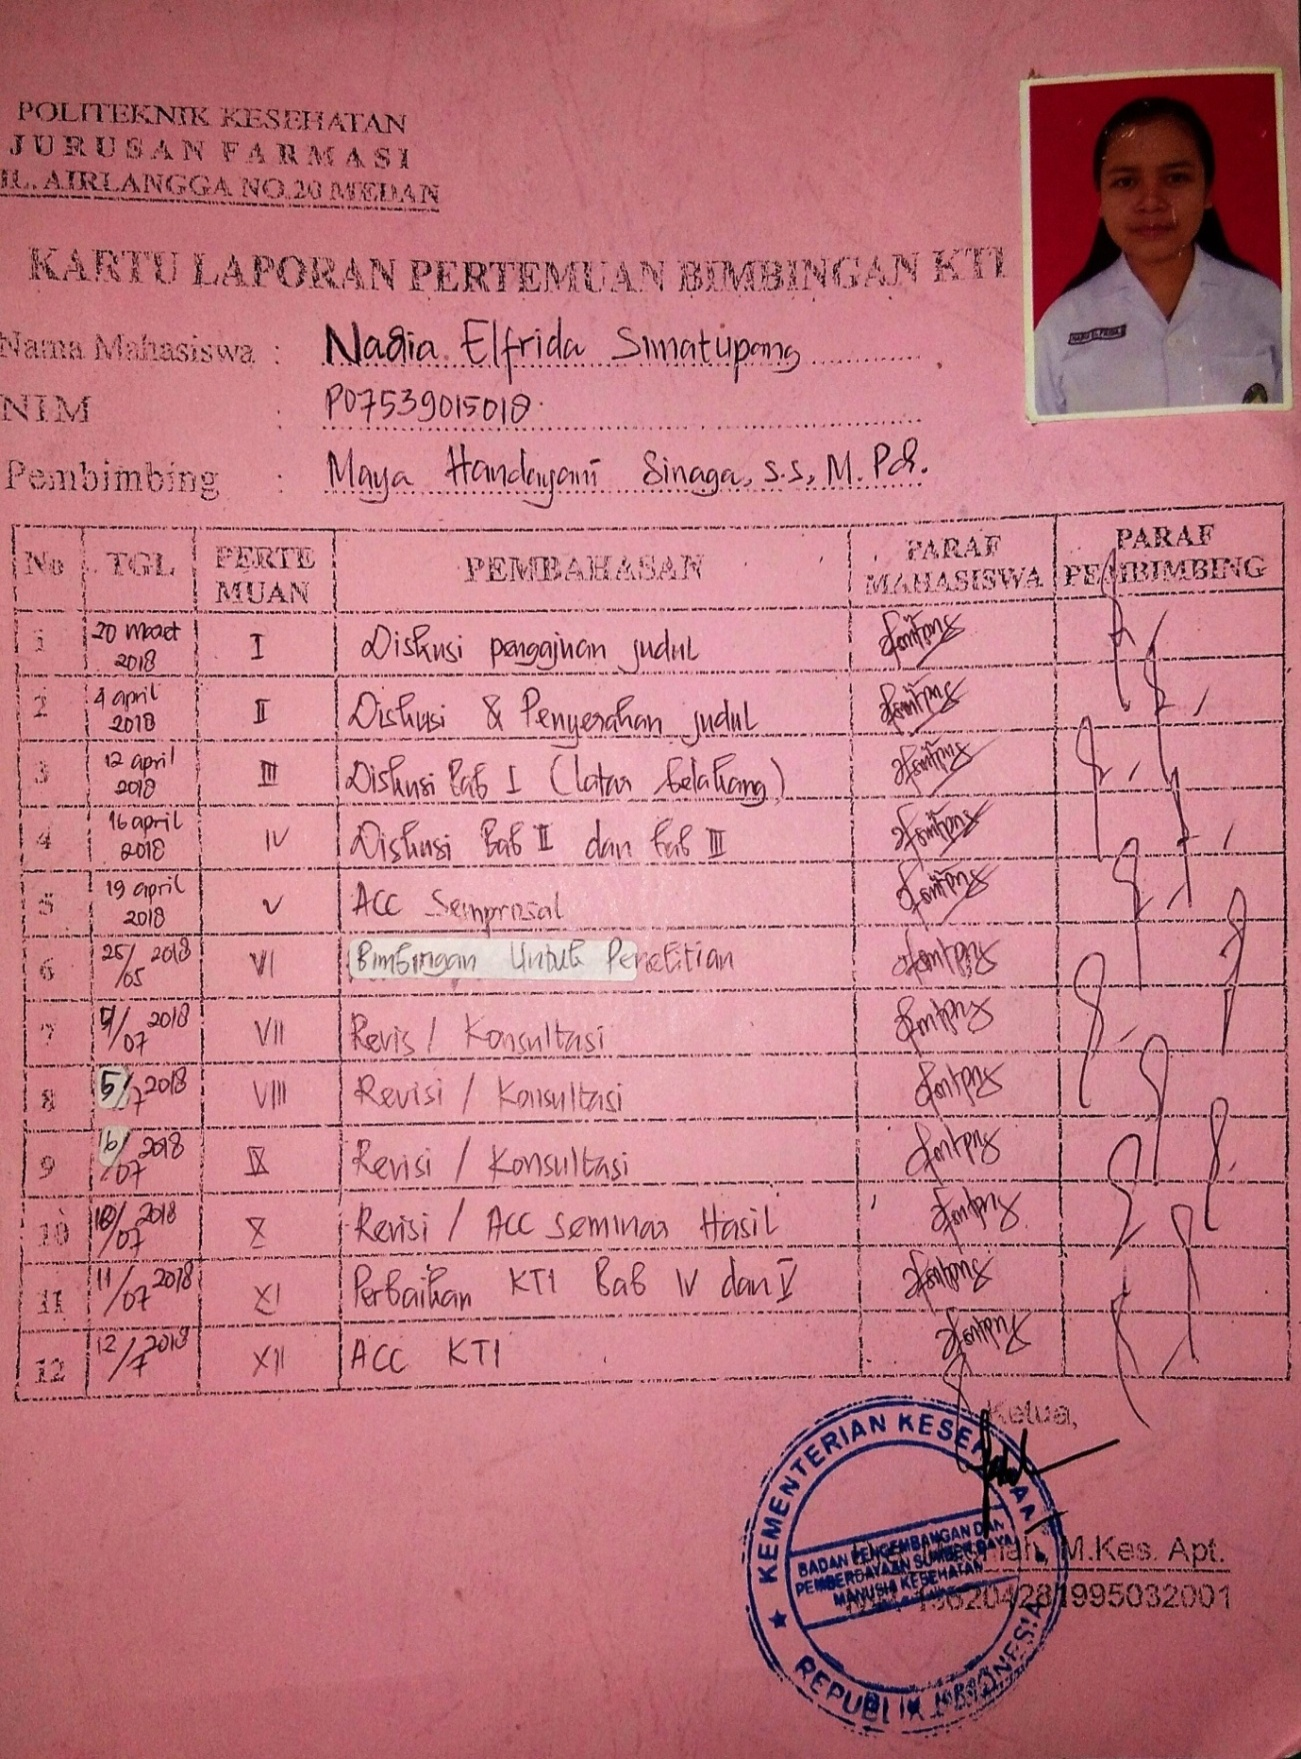 POLITEKNIK KESEHATAN
JURUSAN FARMASI
JL. AIRLANGGA NO.20 MEDAN
KARTU LAPORAN PERTEMUAN BIMBINGAN KTI
Nama Mahasiswa : Nadia Elfrida Simatupang
NIM : P07539015018
Pembimbing : Maya Handayani Sinaga, S.S, M.Pd.
No TGL PERTEMUAN PEMBAHASAN PARAF MAHASISWA PARAF PEMBIMBING
1 20 maret 2018 I Diskusi pengajuan judul
2 4 april 2018 II Diskusi & Penyerahan judul
3 12 april 2018 III Diskusi Bab I (latar belakang)
4 16 april 2018 IV Diskusi Bab II dan bab III
5 19 april 2018 V ACC Semprosal
6 25/05 2018 VI Bimbingan Untuk Penelitian
7 /07 2018 VII Revis / Konsultasi
8 5/7 2018 VIII Revisi / Konsultasi
9 6/07 2018 IX Revisi / Konsultasi
10 10/07 2018 X Revisi / ACC Seminar Hasil
11 11/07 2018 XI Perbaikan KTI Bab IV dan V
12 12/7 2018 XII ACC KTI
Ketua,
KEMENTERIAN KESEHATAN
BADAN PENGEMBANGAN DAN
PEMBERDAYAAN SUMBER DAYA
MANUSIA KESEHATAN
REPUBLIK INDONESIA
M.Kes. Apt.
196204281995032001